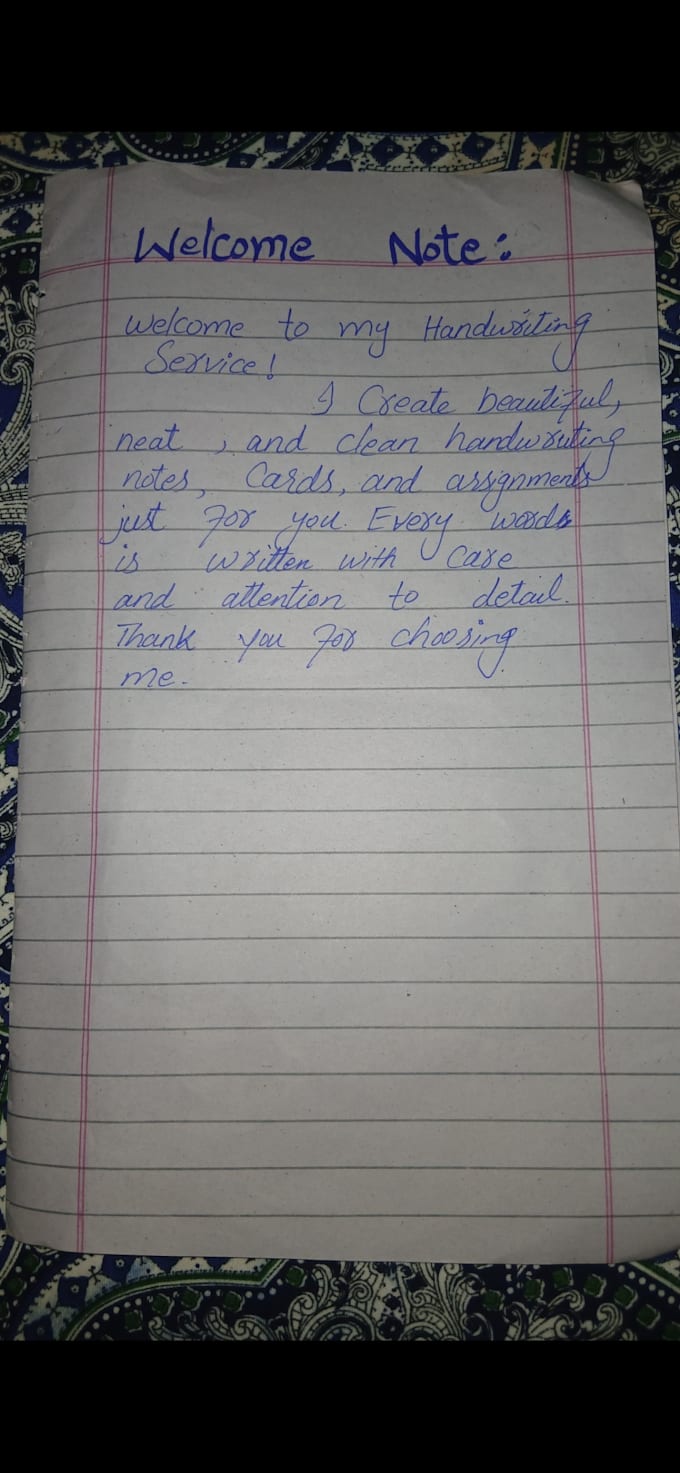 Welcome Note:
Welcome to my Handwriting
Service!
I Create beautiful,
neat, and clean handwriting
notes, Cards, and assignments
just for you. Every words
is written with care
and attention to detail.
Thank you for choosing
me.